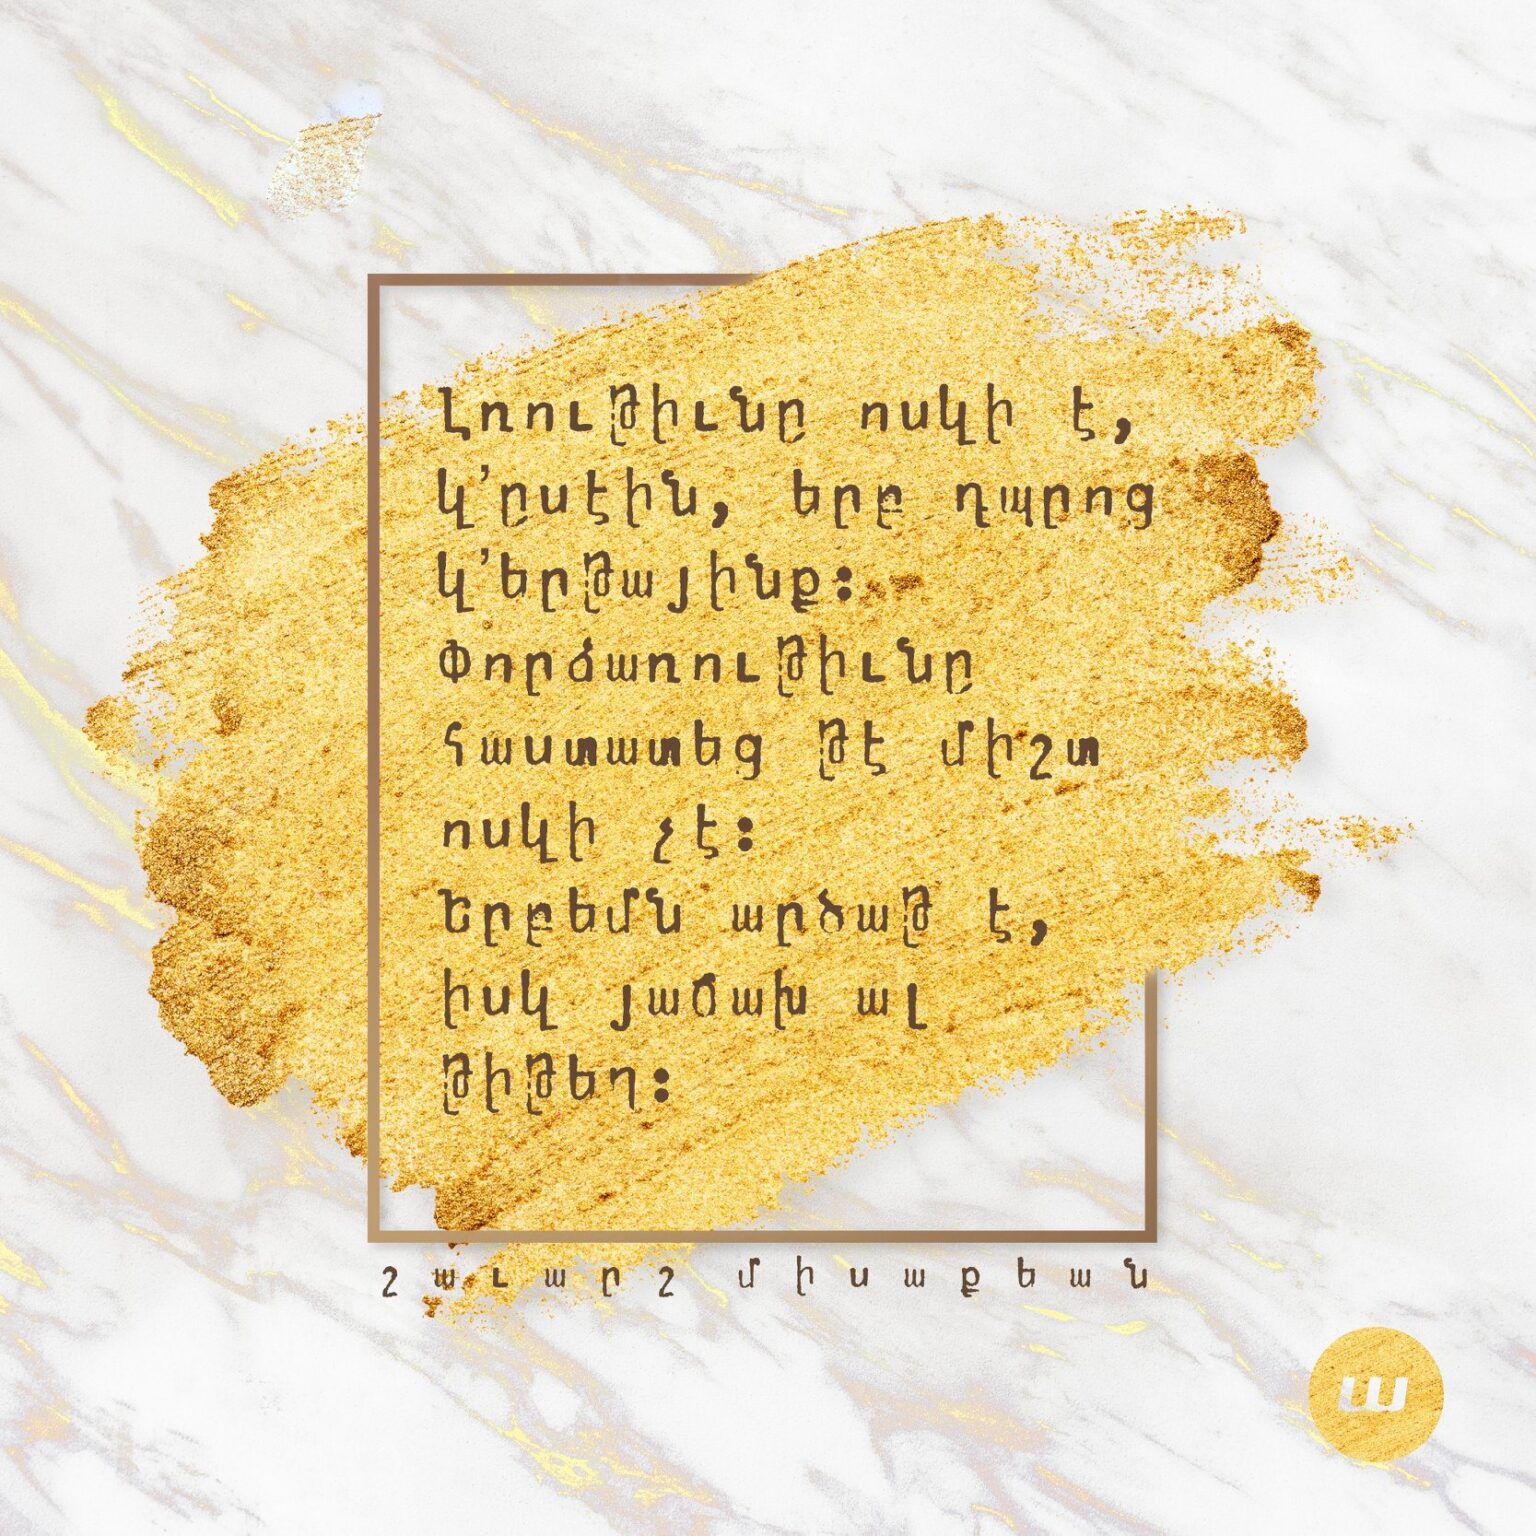 Լռութիւնը ոսկի է,
կ՚ըսէին, երբ դպրոց
կ՚երթայինք։
Փորձառութիւնը
հաստատեց թէ միշտ
ոսկի չէ։
Երբեմն արծաթ է,
իսկ յաճախ ալ
թիթեղ։
շաւարշ միսաքեան
ա